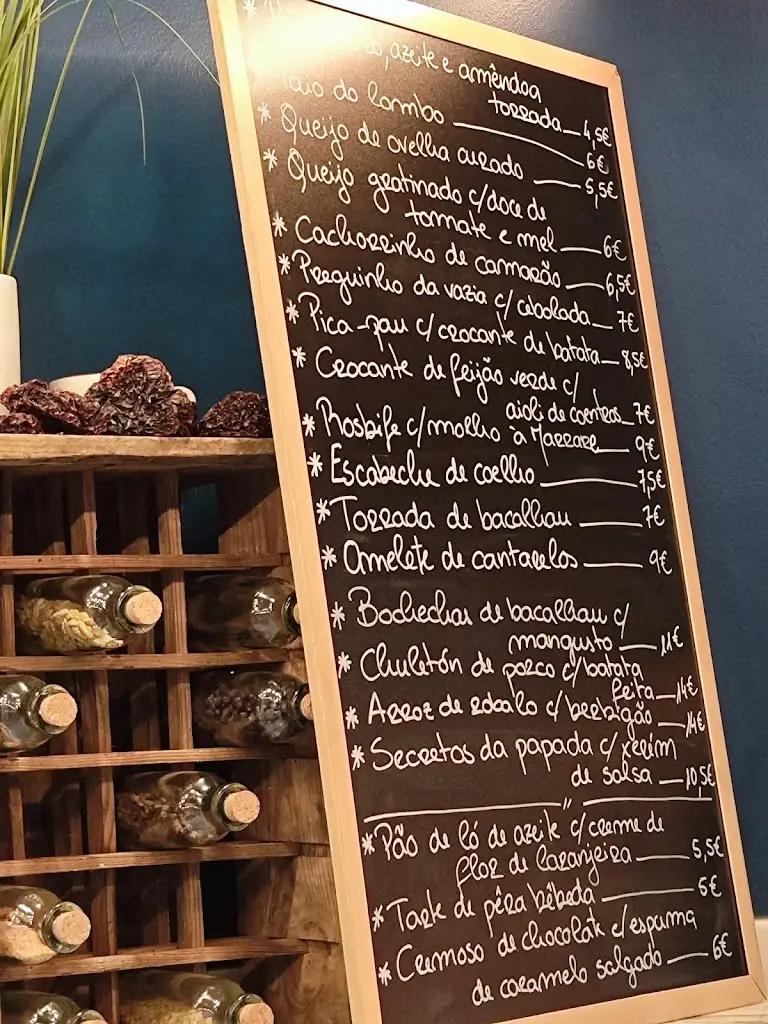 azeite e amêndoa
torrada 4,5€
do lombo 6€
* Queijo de ovelha curado 5,5€
* Queijo gratinado c/doce de
tomate e mel 6€
* Cachorrinho de camarão 6,5€
* Preguinho da vazia c/ cebolada 7€
* Pica-pau c/crocante de batata 8,5€
* Crocante de feijão verde c/
aioli de coentros 7€
* Rosbife c/molho à 9€
* Escabeche de coelho 7,5€
* Torrada de bacalhau 7€
* Omelete de cantarelos 9€
* Bochechas de bacalhau c/
mangusto 11€
* Chuletón de porco c/batata
frita 14€
* Arroz de robalo c/berbigão 14€
* Secretos da papada c/xerém
de salsa 10,5€
"
* Pão de ló de azeite c/creme de
flor de laranjeira 5,5€
* Tarte de pêra bêbeda 5€
* Cremoso de chocolate c/espuma
de caramelo salgado 6€